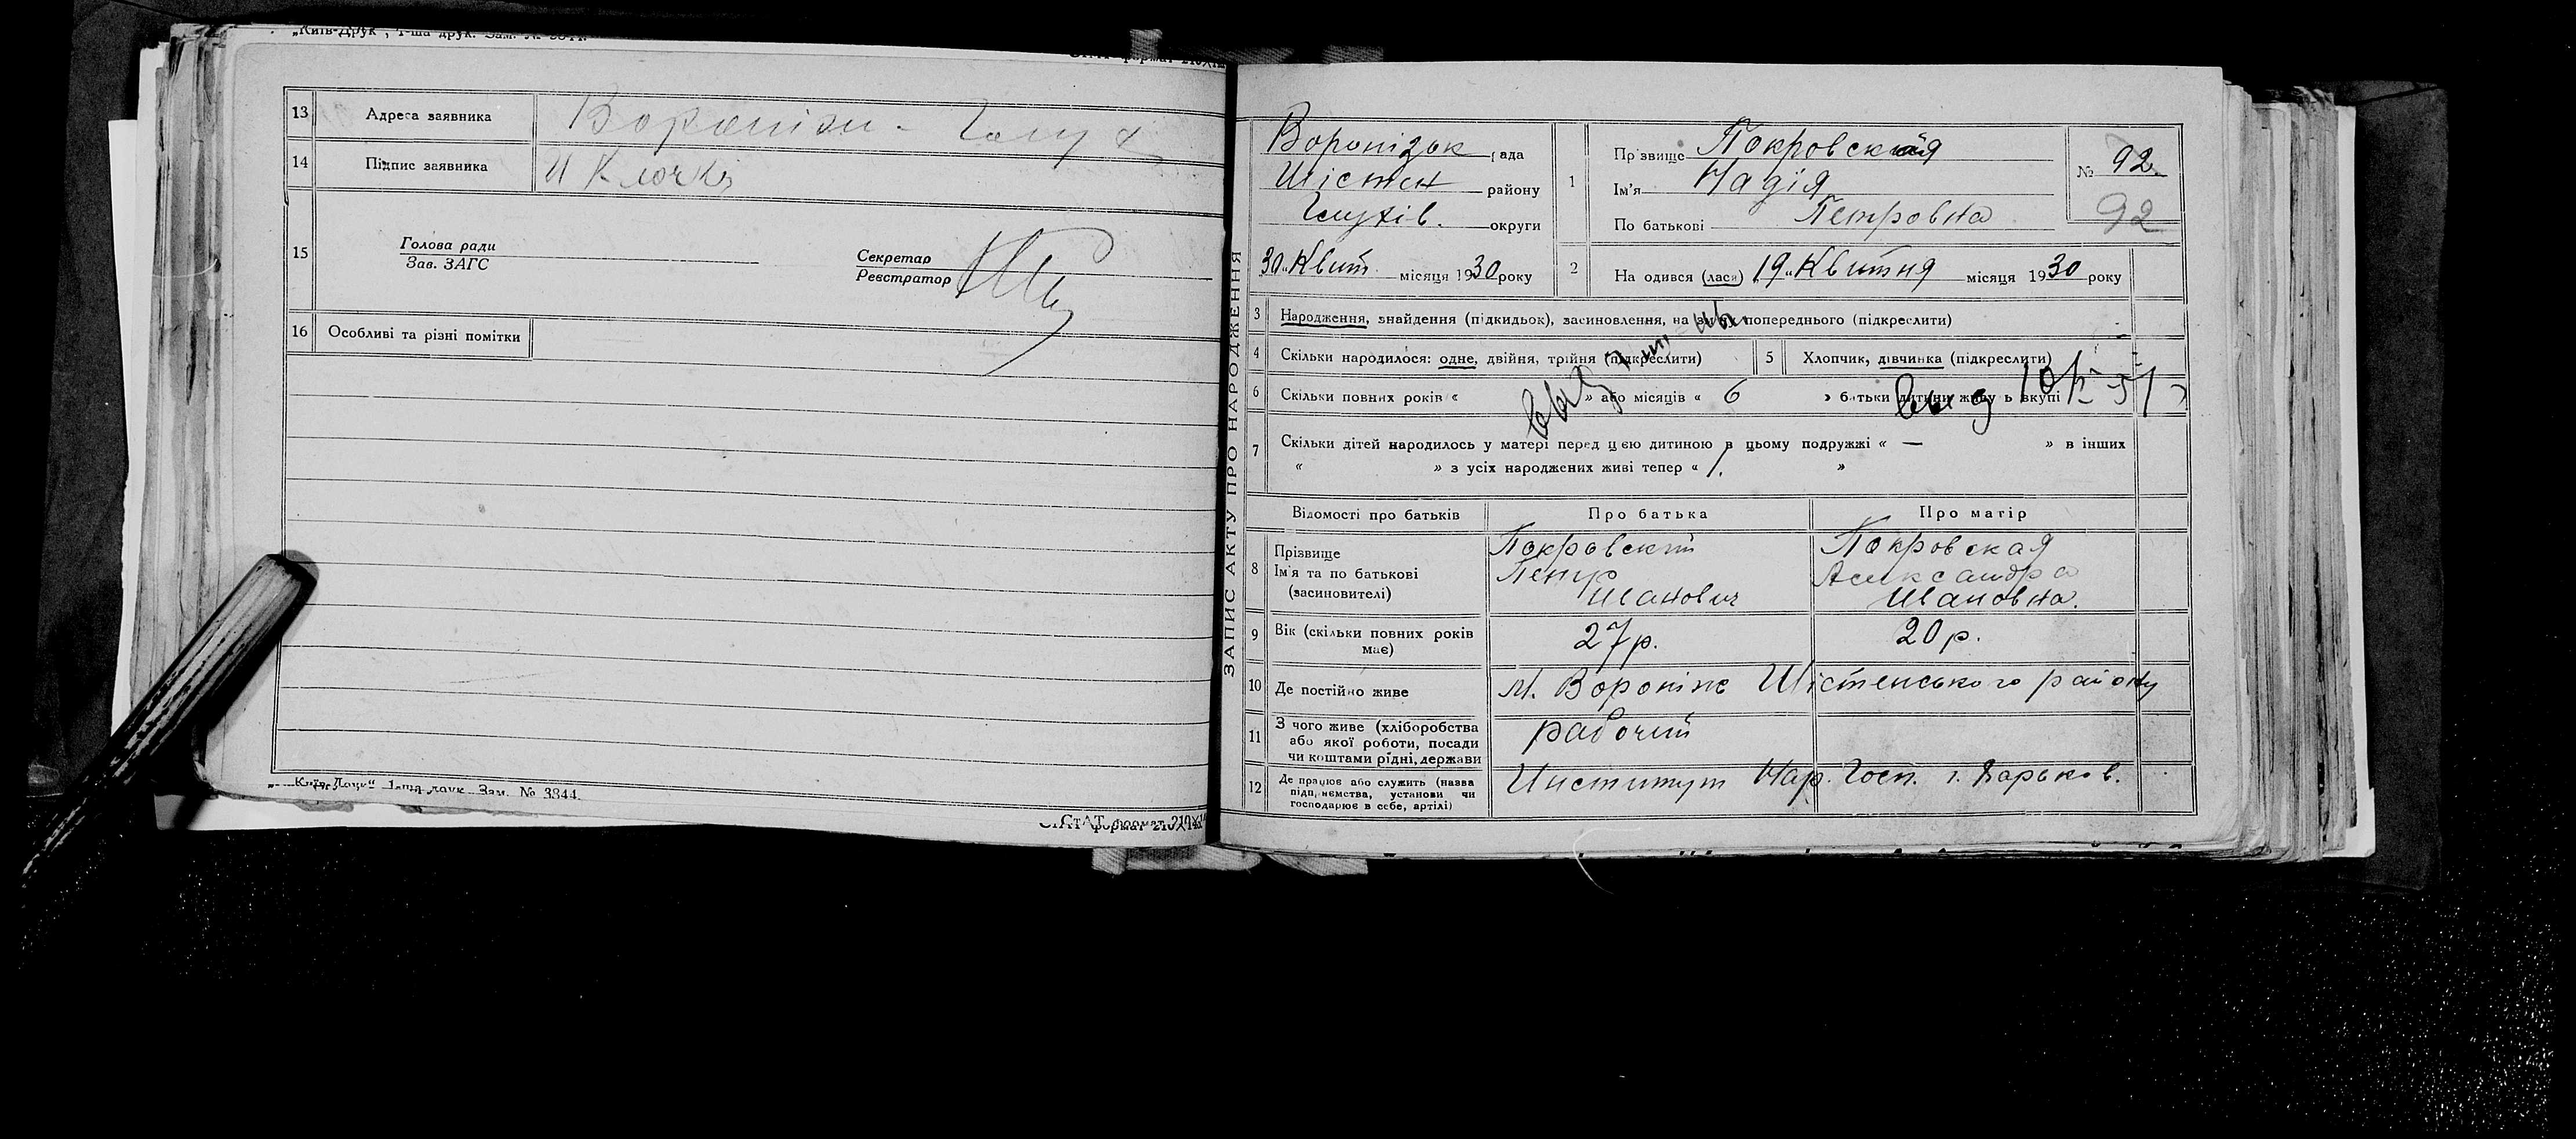 „Київ-Друк", 1-ша друк. Зам. № 3844.
13 Адреса заявника
14 Підпис заявника И Клочко
15 Голова ради
Зав. ЗАГС
Секретар
Реєстратор
16 Особливі та різні помітки
„Київ-Друк" 1-ша друк. Зам. № 3844.
СтАТ формат 210×
ЗАПИС АКТУ ПРО НАРОДЖЕННЯ
Воронізьк рада
Шістен району
Глухів. округи
30 „Квит. місяця 1930 року
1 Прізвище Покровская
Ім'я Надія
По батькові Петровна
№ 92.
92
2 Народився (лася) 19 „Квитня місяця 1930 року
3 Народження, знайдення (підкидьок), засиновлення, на зміну попереднього (підкреслити)
4 Скільки народилося: одне, двійня, трійня (підкреслити)
5 Хлопчик, дівчинка (підкреслити)
6 Скільки повних років « » або місяців « 6 » батьки дитини живуть вкупі
7 Скільки дітей народилось у матері перед цією дитиною в цьому подружжі « — » в інших
« » з усіх народжених живі тепер « 1. »
Відомості про батьків Про батька Про матір
8 Прізвище
Ім'я та по батькові
(засиновителі)
Покровский
Петр
Иванович
Покровская
Александра
Ивановна.
9 Вік (скільки повних років має) 27 р. 20 р.
10 Де постійно живе м. Вороніж Шістенського району
11 З чого живе (хліборобства
або якої роботи, посади
чи коштами рідні, держави
рабочий
12 Де працює або служить (назва
підприємства, установи чи
господарює в себе, артілі)
Институт Нар. Госп. г. Харьков.